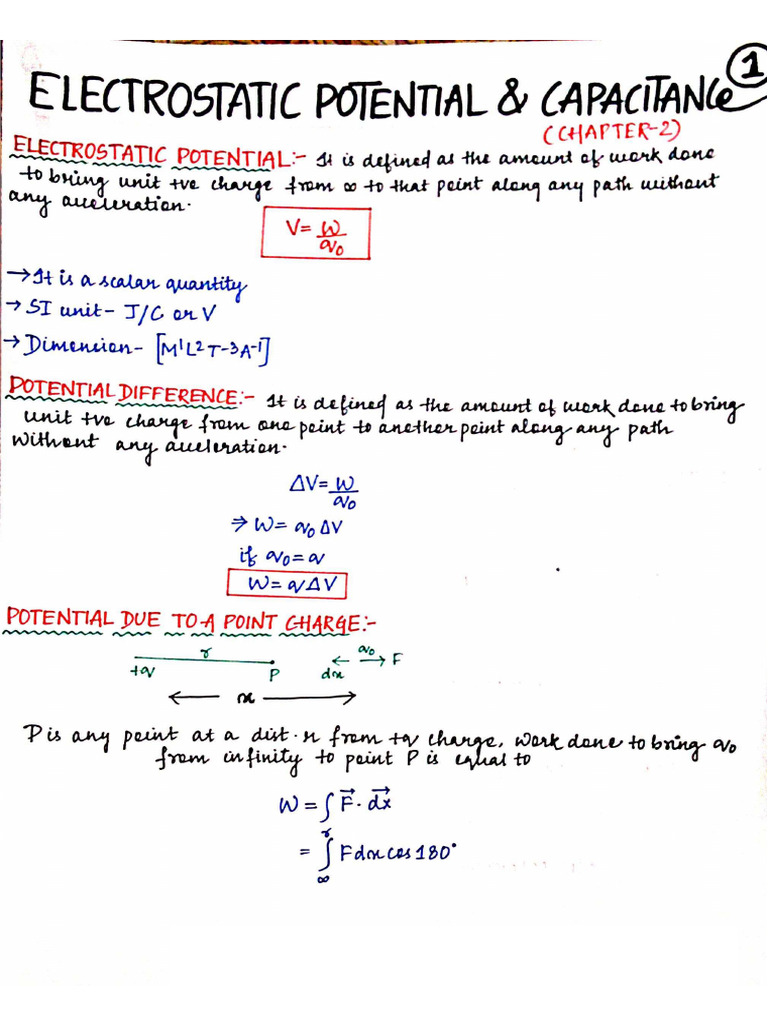 1
ELECTROSTATIC POTENTIAL & CAPACITANCE
(CHAPTER-2)
ELECTROSTATIC POTENTIAL:- It is defined as the amount of work done
to bring unit +ve charge from ∞ to that point along any path without
any acceleration.
V= W/q₀
→It is a scalar quantity
→ SI unit- J/C or V
→ Dimension- [M¹L²T⁻³A⁻¹]
POTENTIAL DIFFERENCE:- It is defined as the amount of work done to bring
unit +ve charge from one point to another point along any path
without any acceleration.
ΔV= W/q₀
⇒ W= q₀ΔV
if q₀=q
W=qΔV
POTENTIAL DUE TO A POINT CHARGE:-
r q₀ F
+q P dx
x
P is any point at a dist. r from +q charge, work done to bring q₀
from infinity to point P is equal to
W = ∫F⃗. dx⃗
= ∫∞^r Fdx cos 180°